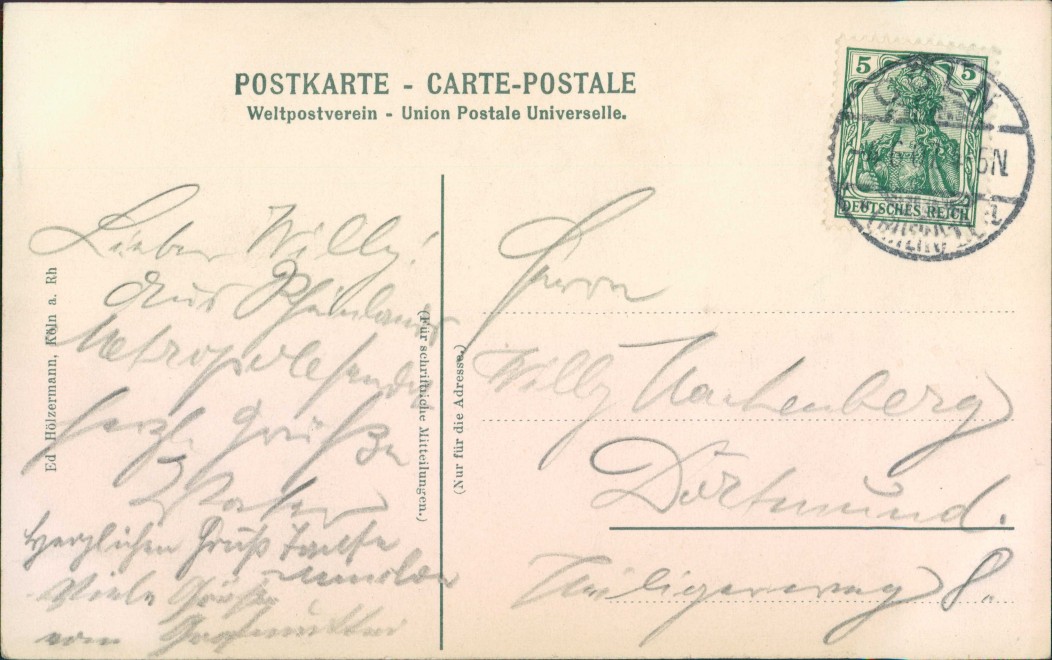 POSTKARTE - CARTE-POSTALE
Weltpostverein - Union Postale Universelle.
5 5
DEUTSCHES REICH
5N
Ed Hölzermann, Köln a. Rh
(Für schriftliche Mitteilungen.)
(Nur für die Adresse.)
Lieber Willy!
Aus Rheinlands
Metropole sendet
herzl. Grüße
Vater
Herzlichen Gruß Tante
Viele Grüße
von Großmutter
Herrn
Willy
Dortmund.
Heiligerweg 8.